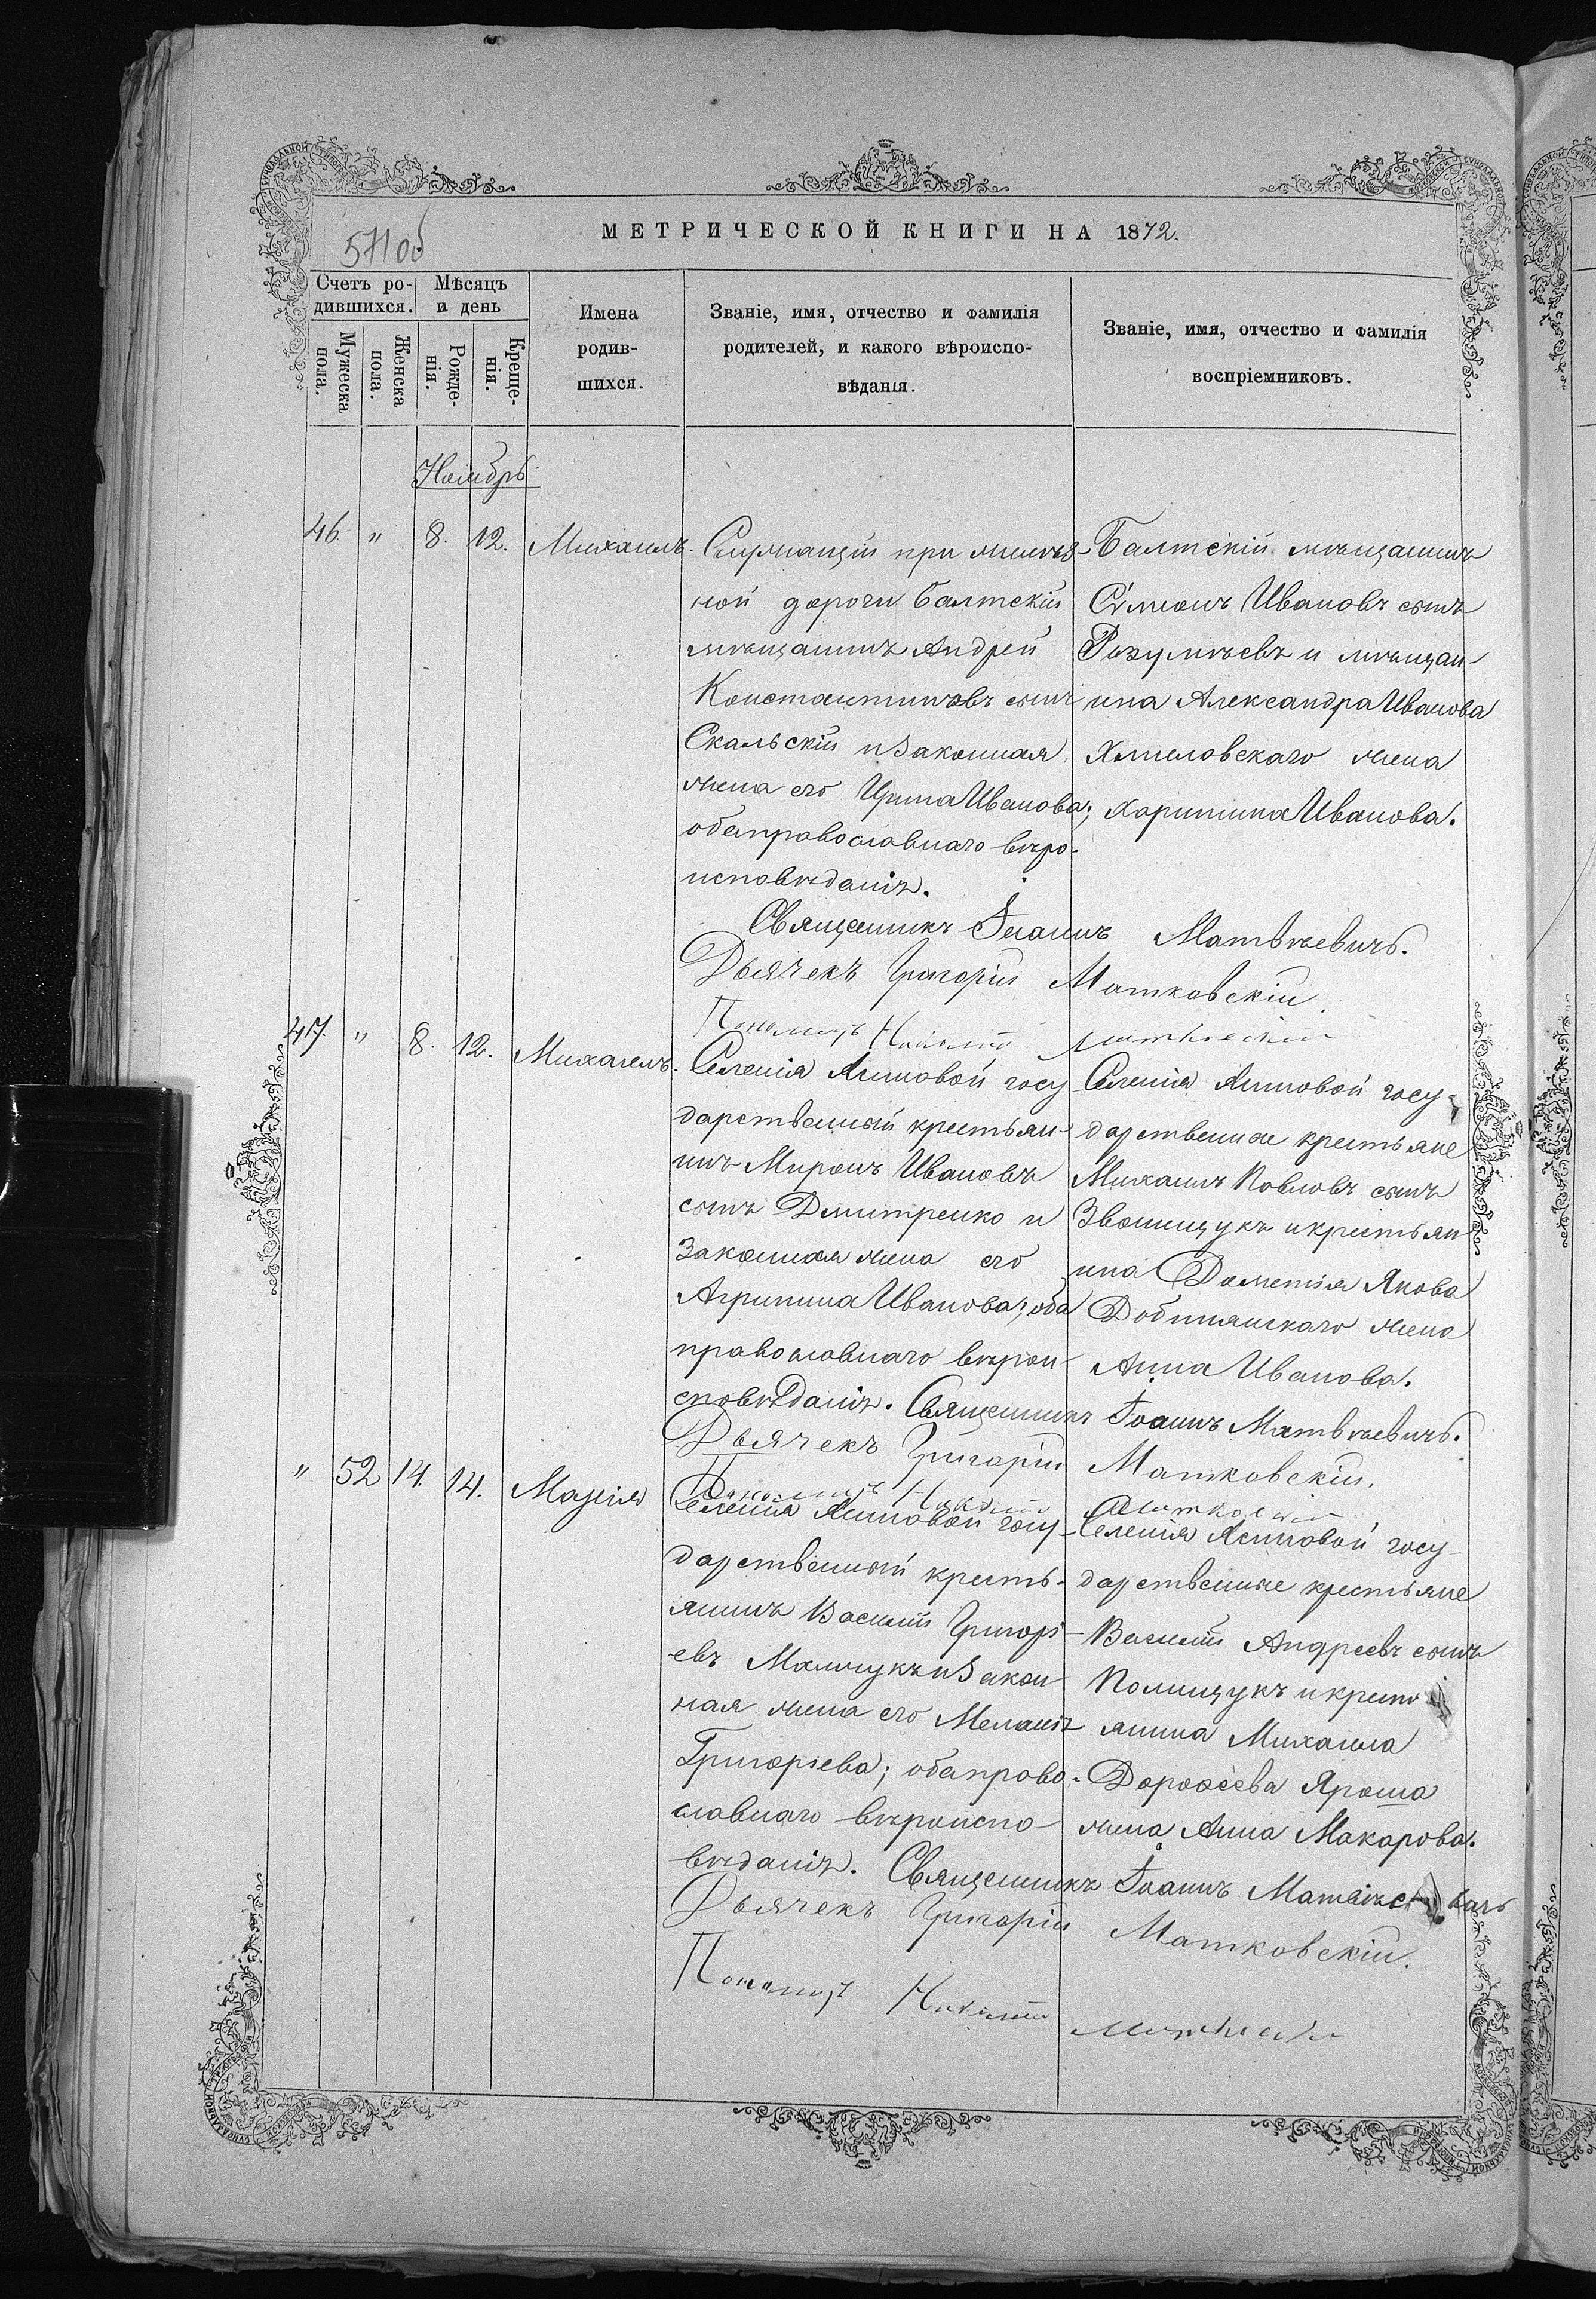 МЕТРИЧЕСКОЙ КНИГИ НА 1872.
571об
Счетъ ро-
дившихся.
Мѣсяцъ
и день
Мужеска
пола.
Женска
пола.
Рожде-
нія.
Креще-
нія.
Имена
родив-
шихся.
Званіе, имя, отчество и фамилія
родителей, и какого вѣроиспо-
вѣданія.
Званіе, имя, отчество и фамилія
воспріемниковъ.
Ноябрь
46. " 8. 12. Михаилъ.
Служащій при желѣз-
ной дороги Балтскій
мѣщанинъ Андрей
Константиновъ сынъ
Скальскій и законная
жена его Ирина Иванова;
оба православнаго вѣро-
исповѣданія.
Балтскій мѣщанинъ
Симеонъ Ивановъ сынъ
Разумѣевъ и мѣщан-
ина Александра Иванова
Хмиловскаго жена
Харитина Иванова.
Священникъ Іоаннъ Матвѣевичъ.
Дьячекъ Григорій Матковскій.
Пономарь
47. " 8. 12. Михаилъ.
Селенія Ясиновой госу
дарственный крестьян-
инъ Миронъ Ивановъ
сынъ Дмитренко и
законная жена его
Агрипина Иванова; оба
православнаго вѣрои-
сповѣданія.
Селенія Ясиновой госу-
дарственные крестьяне
Михаилъ Повловъ сынъ
и крестьян
ина Дометія Якова
жена
Анна Иванова.
Священникъ Іоаннъ Матвѣевичъ.
Дьячекъ Григорій Матковскій.
Пономарь
" 52 14. 14. Марія
Селенія Ясиновой госу-
дарственный кресть-
янинъ Василій Григорі-
евъ и закон
ная жена его Меланія
Григоріева; оба право-
славнаго вѣроиспо-
вѣданія.
Селенія Ясиновой госу-
дарственные крестьяне
Василій Андреевъ сынъ
Полищукъ и крест
янина Михаила
Дорофеева Яроша
жена Анна Макарова.
Священникъ Іоаннъ
Дьячекъ Григорій Матковскій.
Пономарь